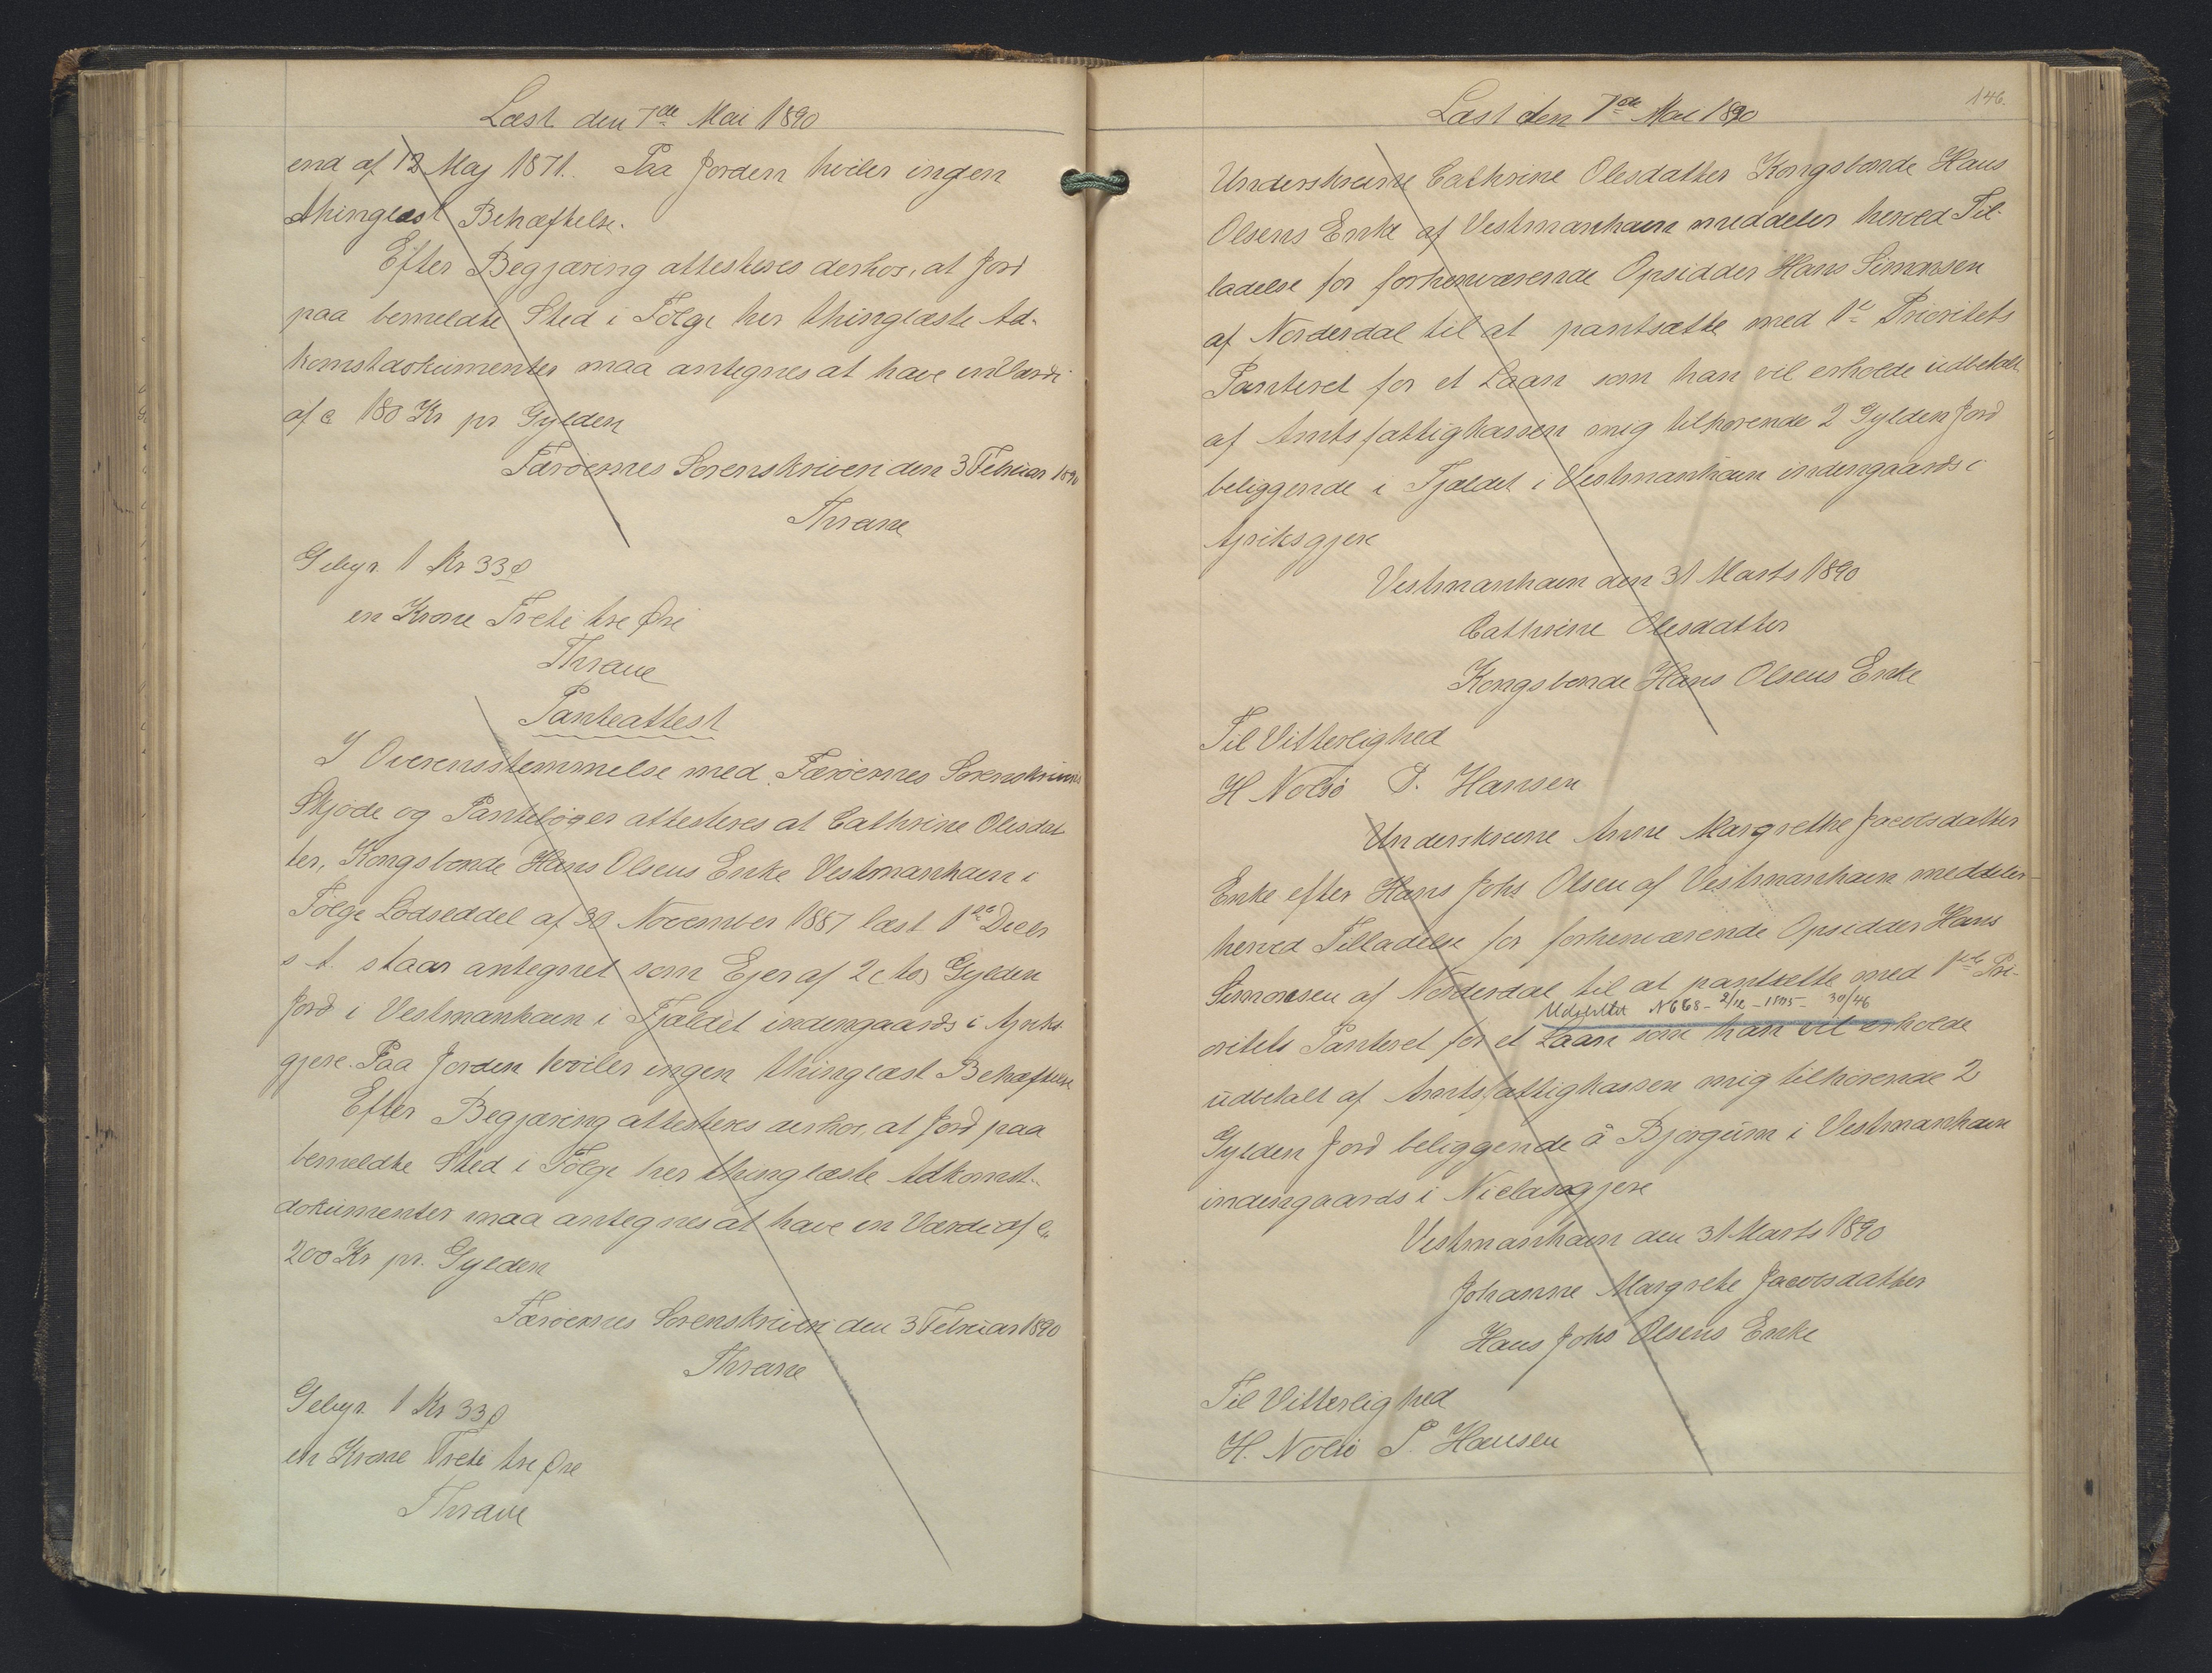 Læst den 7de Mai 1890
end af 12 Maj 1871. Paa Jorden hviler ingen
thinglæst Behæftelse.
Efter Begjæring attesteres derhos, at Jord
paa bemeldte Sted i Følge her thinglæste Ad-
komstdokumenter maa antegnes at have en Værdi
af c 180 Kr pr Gylden
Færøernes Sorenskriveri den 3 Februar 1890
Thrane
Gebyr. 1 Kr 33 Ø
en Krone Treti tre Øre
Thrane
Panteattest
I Overensstemmelse med Færøernes Sorenskriveris
Skjøde og Pantebøger attesteres at Cathrine Olesdat
ter, Kongsbonde Hans Olsens Enke Vestmanhavn i
Følge Lodseddel af 30 November 1887 læst 1ste Decbr
s A. staar antegnet som Ejer af 2 (to) Gylden
Jord i Vestmanhavn i Fjældet indengaards i Apriks
gjere. Paa Jorden hviler ingen thinglæst Behæftelse
Efter Begjæring attesteres derhos, at Jord paa
bemeldte Sted i Følge her thinglæste Adkomst-
dokumenter maa antegnes at have en Værdi af c.
200 Kr pr. Gylden
Færøernes Sorenskriveri den 3 Februar 1890
Thrane
Gebyr. 1 Kr 33 Ø
en Krone Treti tre Øre
Thrane
146.
Læst den 7de Mai 1890
Underskrevne Cathrine Olesdatter Kongsbonde Hans
Olsens Enke af Vestmanhavn meddeler herved Til-
ladelse for forhenværende Opsidder Hans Simonsen
af Norderdal til at pantsætte med 1ste Prioritets
Panteret for et Laan som han vil erholde udbetalt
af Amtsfattigkassen mig tilhørende 2 Gylden Jord
beliggende i Fjældet i Vestmanhavn indengaards i
Apriksgjere
Vestmanhavn den 31 Marts 1890
Cathrine Olesdatter
Kongsbonde Hans Olsens Enke
Til Vitterlighed
H Nolsø P. Hansen
Underskrevne Anne Margrethe Jacobsdatter
Enke efter Hans Johs Olsen af Vestmanhavn meddeler
herved Tilladelse for forhenværende Opsidder Hans
Simonsen af Norderdal til at pantsætte med 1ste Pri-
Udslettet N 668 - 2/12 - 1895 - 30/46
oritets Panteret for et Laan som han vil erholde
udbetalt af Amtsfattigkassen mig tilhørende 2
Gylden Jord beliggende å Bjørgum i Vestmanhavn
indengaards i Nielasagjere
Vestmanhavn den 31 Marts 1890
Johanne Margrete Jacobsdatter
Hans Johs Olsens Enke
Til Vitterlighed
H. Nolsø P. Hansen